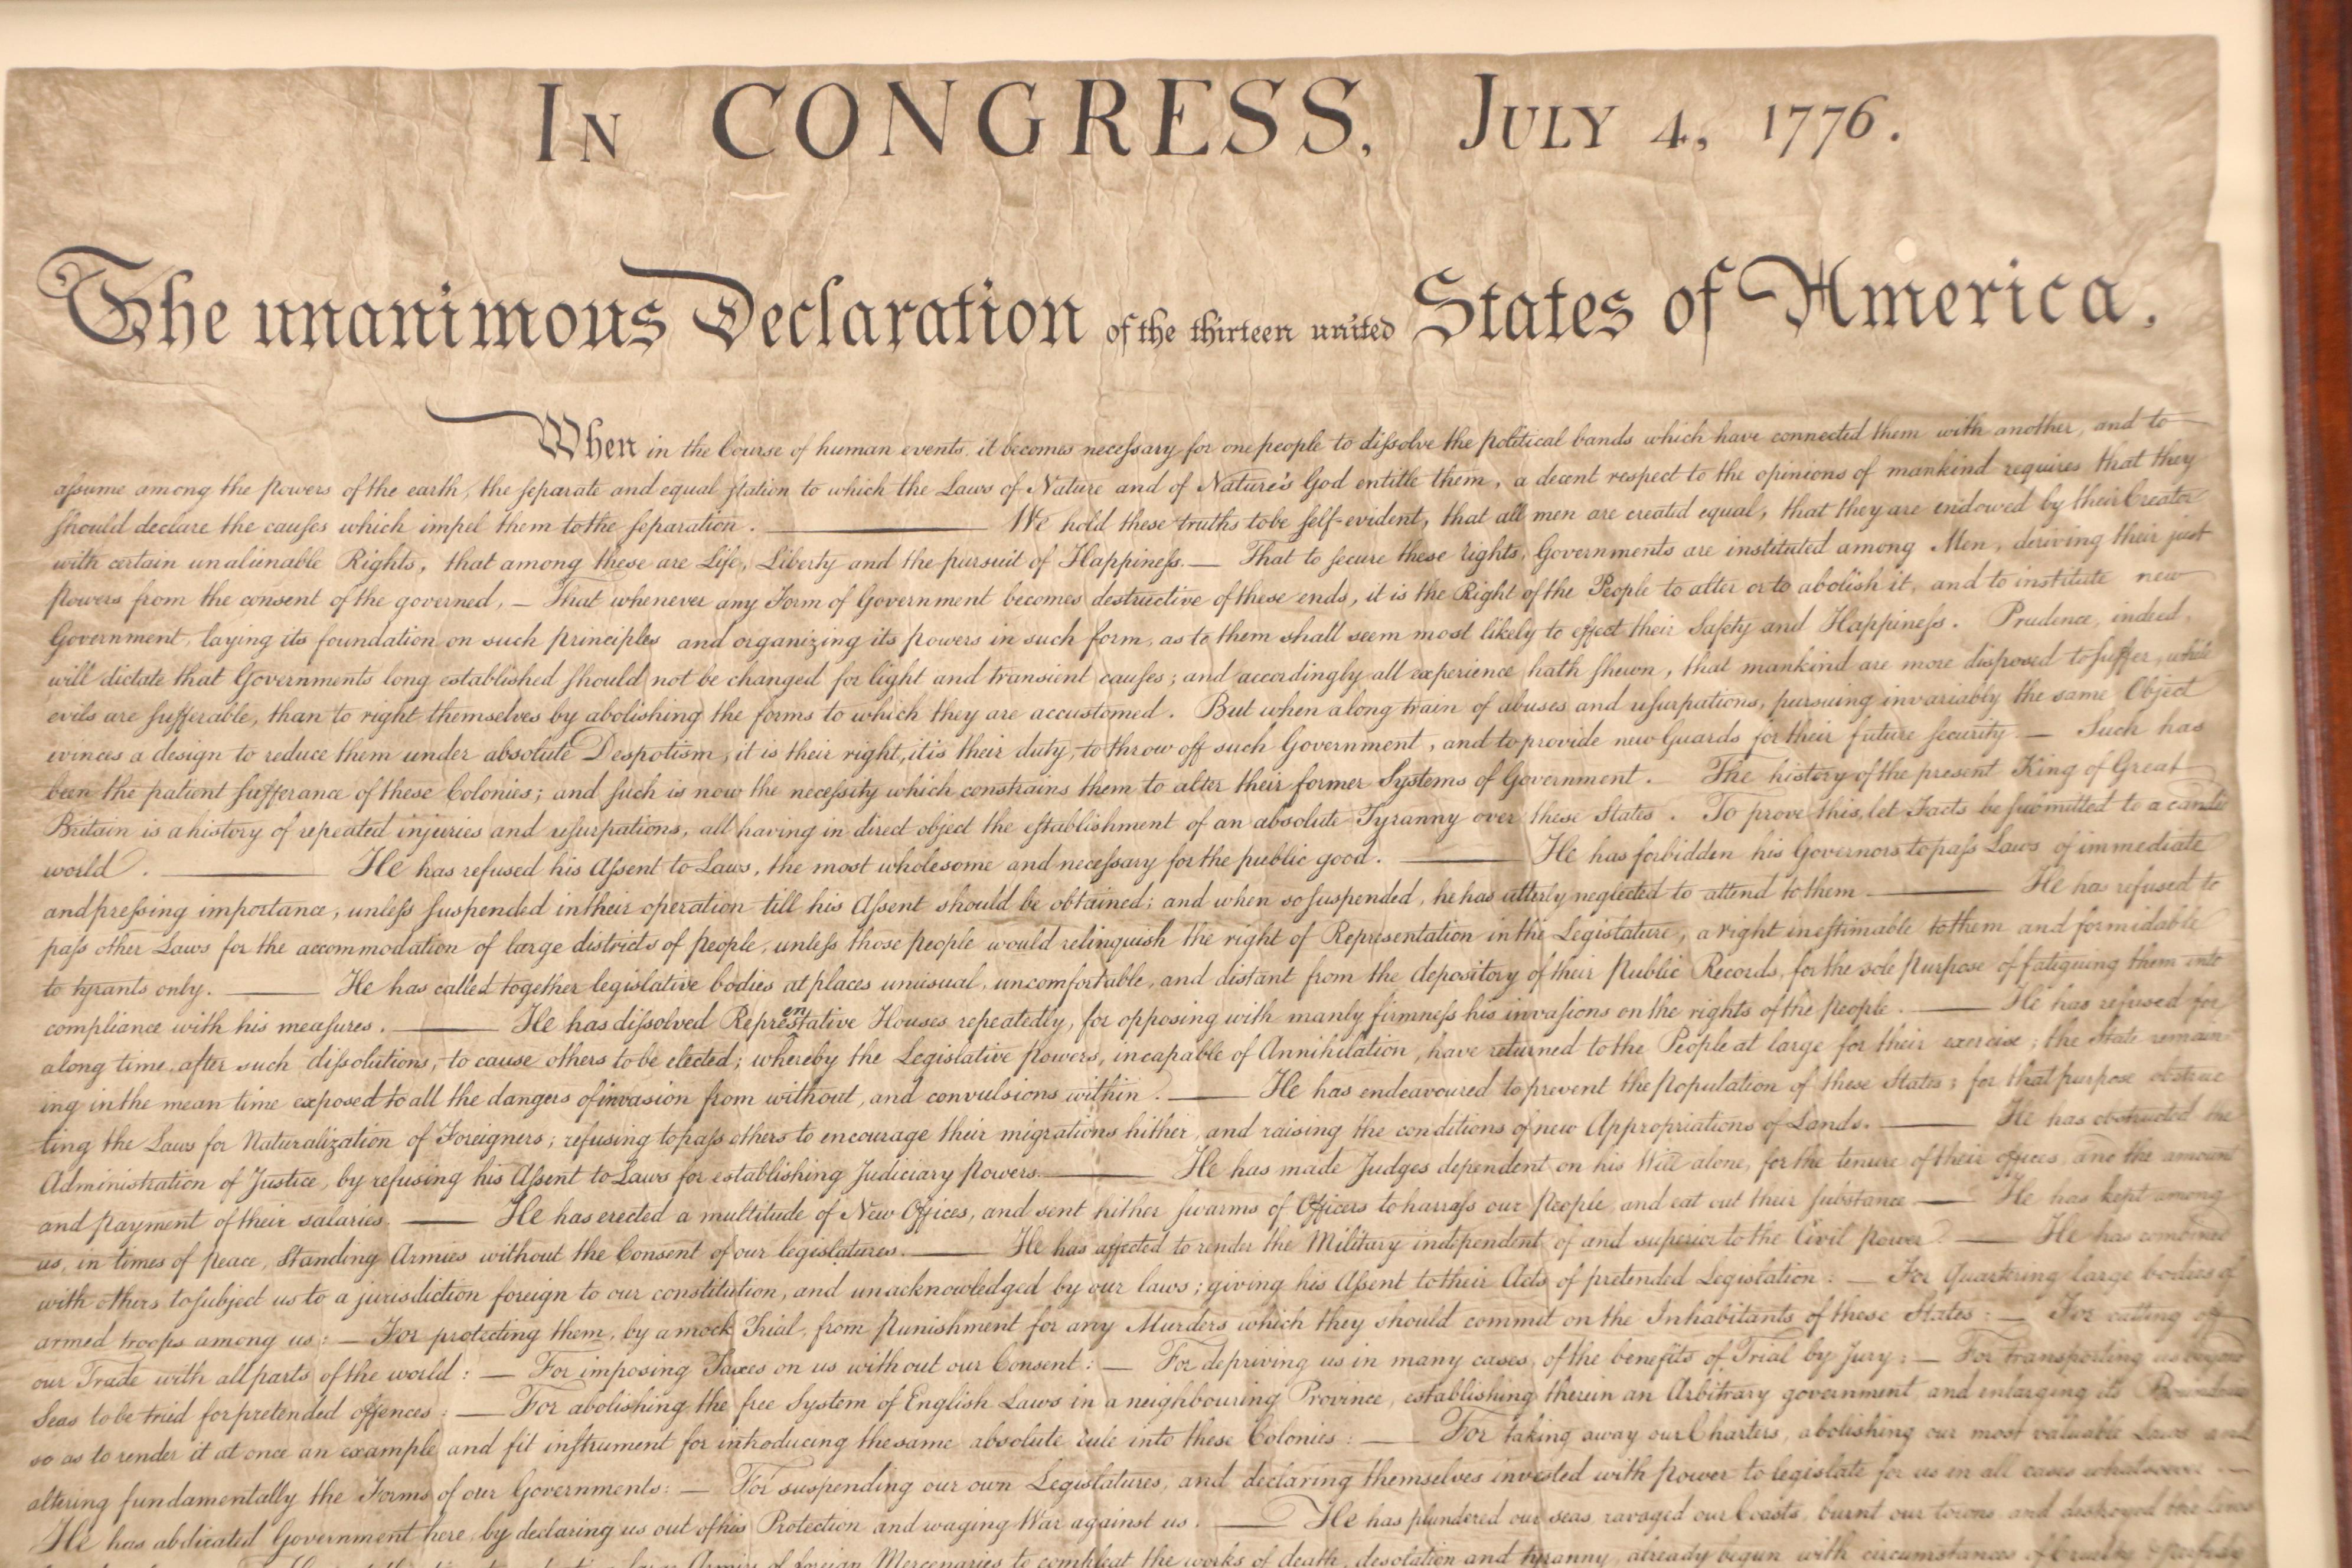 IN CONGRESS, JULY 4, 1776.
The unanimous Declaration of the thirteen united States of America.
When in the Course of human events, it becomes necessary for one people to dissolve the political bands which have connected them with another, and to
assume among the powers of the earth, the separate and equal station to which the Laws of Nature and of Nature's God entitle them, a decent respect to the opinions of mankind requires that they
should declare the causes which impel them to the separation. ——— We hold these truths to be self-evident, that all men are created equal, that they are endowed by their Creator
with certain unalienable Rights, that among these are Life, Liberty and the pursuit of Happiness.— That to secure these rights, Governments are instituted among Men, deriving their just
powers from the consent of the governed, — That whenever any Form of Government becomes destructive of these ends, it is the Right of the People to alter or to abolish it, and to institute new
Government, laying its foundation on such principles and organizing its powers in such form, as to them shall seem most likely to effect their Safety and Happiness. Prudence, indeed,
will dictate that Governments long established should not be changed for light and transient causes; and accordingly all experience hath shewn, that mankind are more disposed to suffer, while
evils are sufferable, than to right themselves by abolishing the forms to which they are accustomed. But when a long train of abuses and usurpations, pursuing invariably the same Object
evinces a design to reduce them under absolute Despotism, it is their right, it is their duty, to throw off such Government, and to provide new Guards for their future security. — Such has
been the patient sufferance of these Colonies; and such is now the necessity which constrains them to alter their former Systems of Government. The history of the present King of Great
Britain is a history of repeated injuries and usurpations, all having in direct object the establishment of an absolute Tyranny over these States. To prove this, let Facts be submitted to a candid
world. ——— He has refused his Assent to Laws, the most wholesome and necessary for the public good. ——— He has forbidden his Governors to pass Laws of immediate
and pressing importance, unless suspended in their operation till his Assent should be obtained; and when so suspended, he has utterly neglected to attend to them ——— He has refused to
pass other Laws for the accommodation of large districts of people, unless those people would relinquish the right of Representation in the Legislature, a right inestimable to them and formidable
to tyrants only. ——— He has called together legislative bodies at places unusual, uncomfortable, and distant from the depository of their Public Records, for the sole purpose of fatiguing them into
compliance with his measures. ——— He has dissolved Representative Houses repeatedly, for opposing with manly firmness his invasions on the rights of the people. ——— He has refused for
a long time, after such dissolutions, to cause others to be elected; whereby the Legislative powers, incapable of Annihilation, have returned to the People at large for their exercise; the State remain
ing in the mean time exposed to all the dangers of invasion from without, and convulsions within. ——— He has endeavoured to prevent the population of these States; for that purpose obstruc
ting the Laws for Naturalization of Foreigners; refusing to pass others to encourage their migrations hither, and raising the conditions of new Appropriations of Lands. ——— He has obstructed the
Administration of Justice, by refusing his Assent to Laws for establishing Judiciary powers. ——— He has made Judges dependent on his Will alone, for the tenure of their offices, and the amount
and payment of their salaries. ——— He has erected a multitude of New Offices, and sent hither swarms of Officers to harrass our People, and eat out their substance. — He has kept among
us, in times of peace, Standing Armies without the Consent of our legislatures. ——— He has affected to render the Military independent of and superior to the Civil power. — He has combined
with others to subject us to a jurisdiction foreign to our constitution, and unacknowledged by our laws; giving his Assent to their Acts of pretended Legislation: — For Quartering large bodies of
armed troops among us: — For protecting them, by a mock Trial, from punishment for any Murders which they should commit on the Inhabitants of these States: — For cutting off
our Trade with all parts of the world: — For imposing Taxes on us without our Consent: — For depriving us in many cases, of the benefits of Trial by Jury: — For transporting us beyond
Seas to be tried for pretended offences: — For abolishing the free System of English Laws in a neighbouring Province, establishing therein an Arbitrary government, and enlarging its Boundaries
so as to render it at once an example and fit instrument for introducing the same absolute rule into these Colonies: — For taking away our Charters, abolishing our most valuable Laws and
altering fundamentally the Forms of our Governments: — For suspending our own Legislatures, and declaring themselves invested with power to legislate for us in all cases whatsoever. —
He has abdicated Government here, by declaring us out of his Protection and waging War against us. — He has plundered our seas, ravaged our Coasts, burnt our towns, and destroyed the lives
large Armies of foreign Mercenaries to compleat the works of death, desolation and tyranny, already begun with circumstances of Cruelty